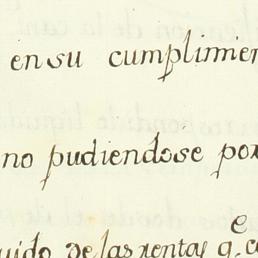 en su cumplimien
no pudiendose por
uido de las rentas q. e